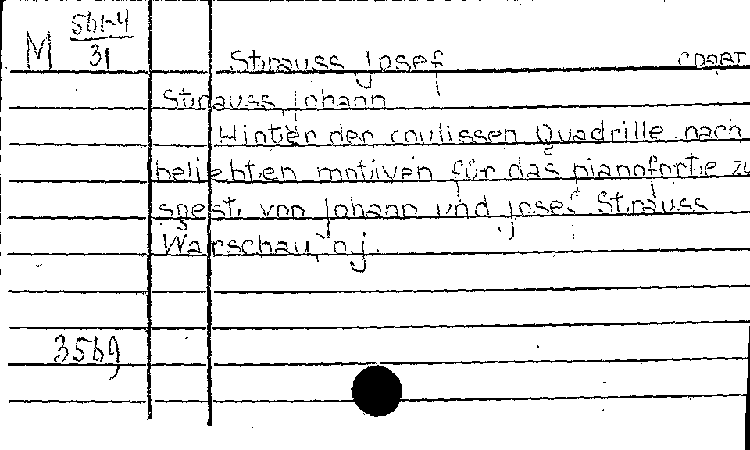 M 561-4
31
Strauss Josef соавт
Strauss, Johann
Winter der coulissen Quadrille nach
beliebten motiven für das pianoforte zu
gest. von Johann und Josef Strauss
Warschau, n j.
3569